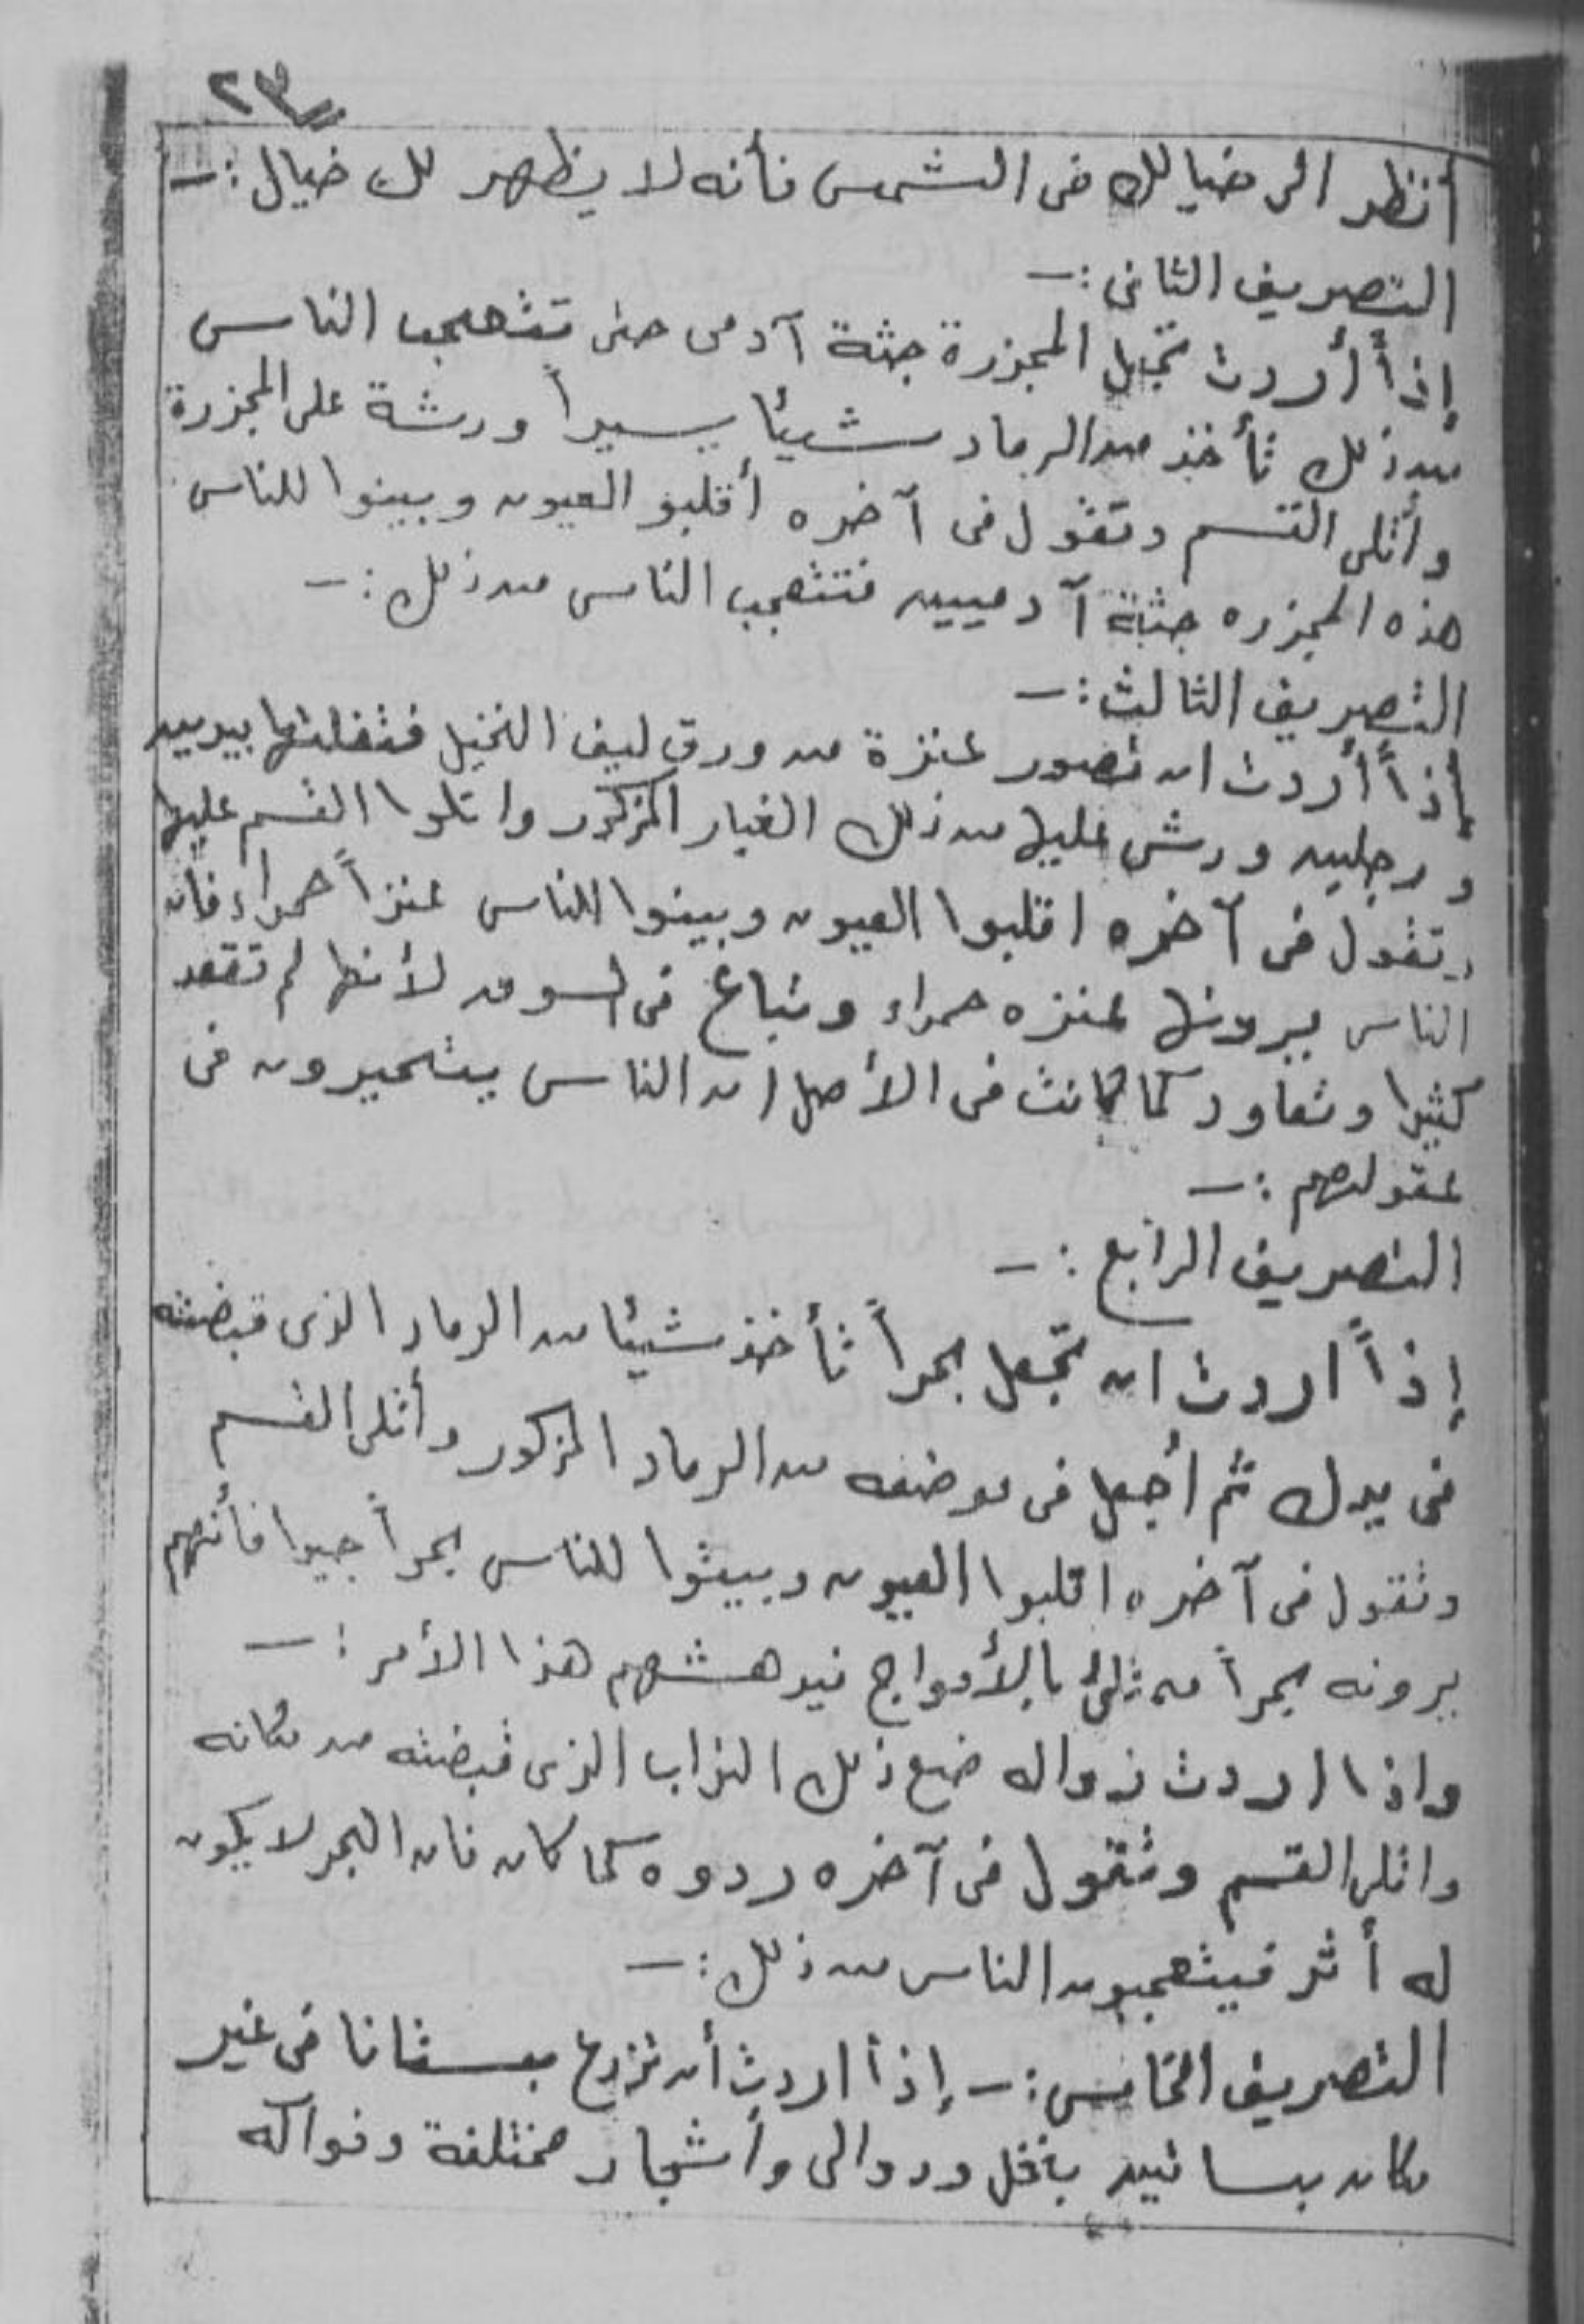 ٢٣
أنظر الى خيالك فى الشمس فأنه لا يظهر لك خيال :ـ
التصريف الثانى :ـ
إذاً أردت تجعل المجزرة جثة آدمى حتى تتعجب الناس
من ذلك تأخذ من الرماد شيئا يسيراً ورشة على المجزرة
وأتلى القسم وتقول فى آخره أقلبو العيون وبينوا للناس
هذه المجزره جثة آدميين فتتعجب الناس من ذلك :ـ
التصريف الثالث :ـ
إذاً أردت ان تصور عنزة من ورق ليف النخيل بيديين
ورجلين ورش عليها من ذلك الغبار المذكور واتلوا القسم عليها
وتقول فى آخره اقلبوا العيون وبينوا للناس عنزاً حمراء فأن
الناس يرونها عنزه حمراء وتباع فى السوق لأنها لم تقعد
كثيرا وتعاود كما كانت فى الأصل ان الناس يتحيرون فى
عقولهم :ـ
التصريف الرابع :ـ
إذاً اردت ان تجعل بحراً تأخذ شيئا من الرماد الذى قبضته
فى يدك ثم أجعل فى موضعه من الرماد المذكور وأتلى القسم
وتقول فى آخره اقلبوا العيون وبيتوا للناس بحراً جيدا فأنهم
يرونه بحراً بالأمواج فيدهشهم هذا الأمر :ـ
واذا اردت زواله ضع ذلك التراب الذى قبضته من مكانه
واتلى القسم وتقول فى آخره ردوه كما كان فان البحر لا يكون
له أثر فيتعجبون الناس من ذلك :ـ
التصريف الخامس :ـ إذاً اردت أن تزرع بستانا فى غير
مكان بساتين بنخل ودوالى وأشجار مختلفة وفواكه